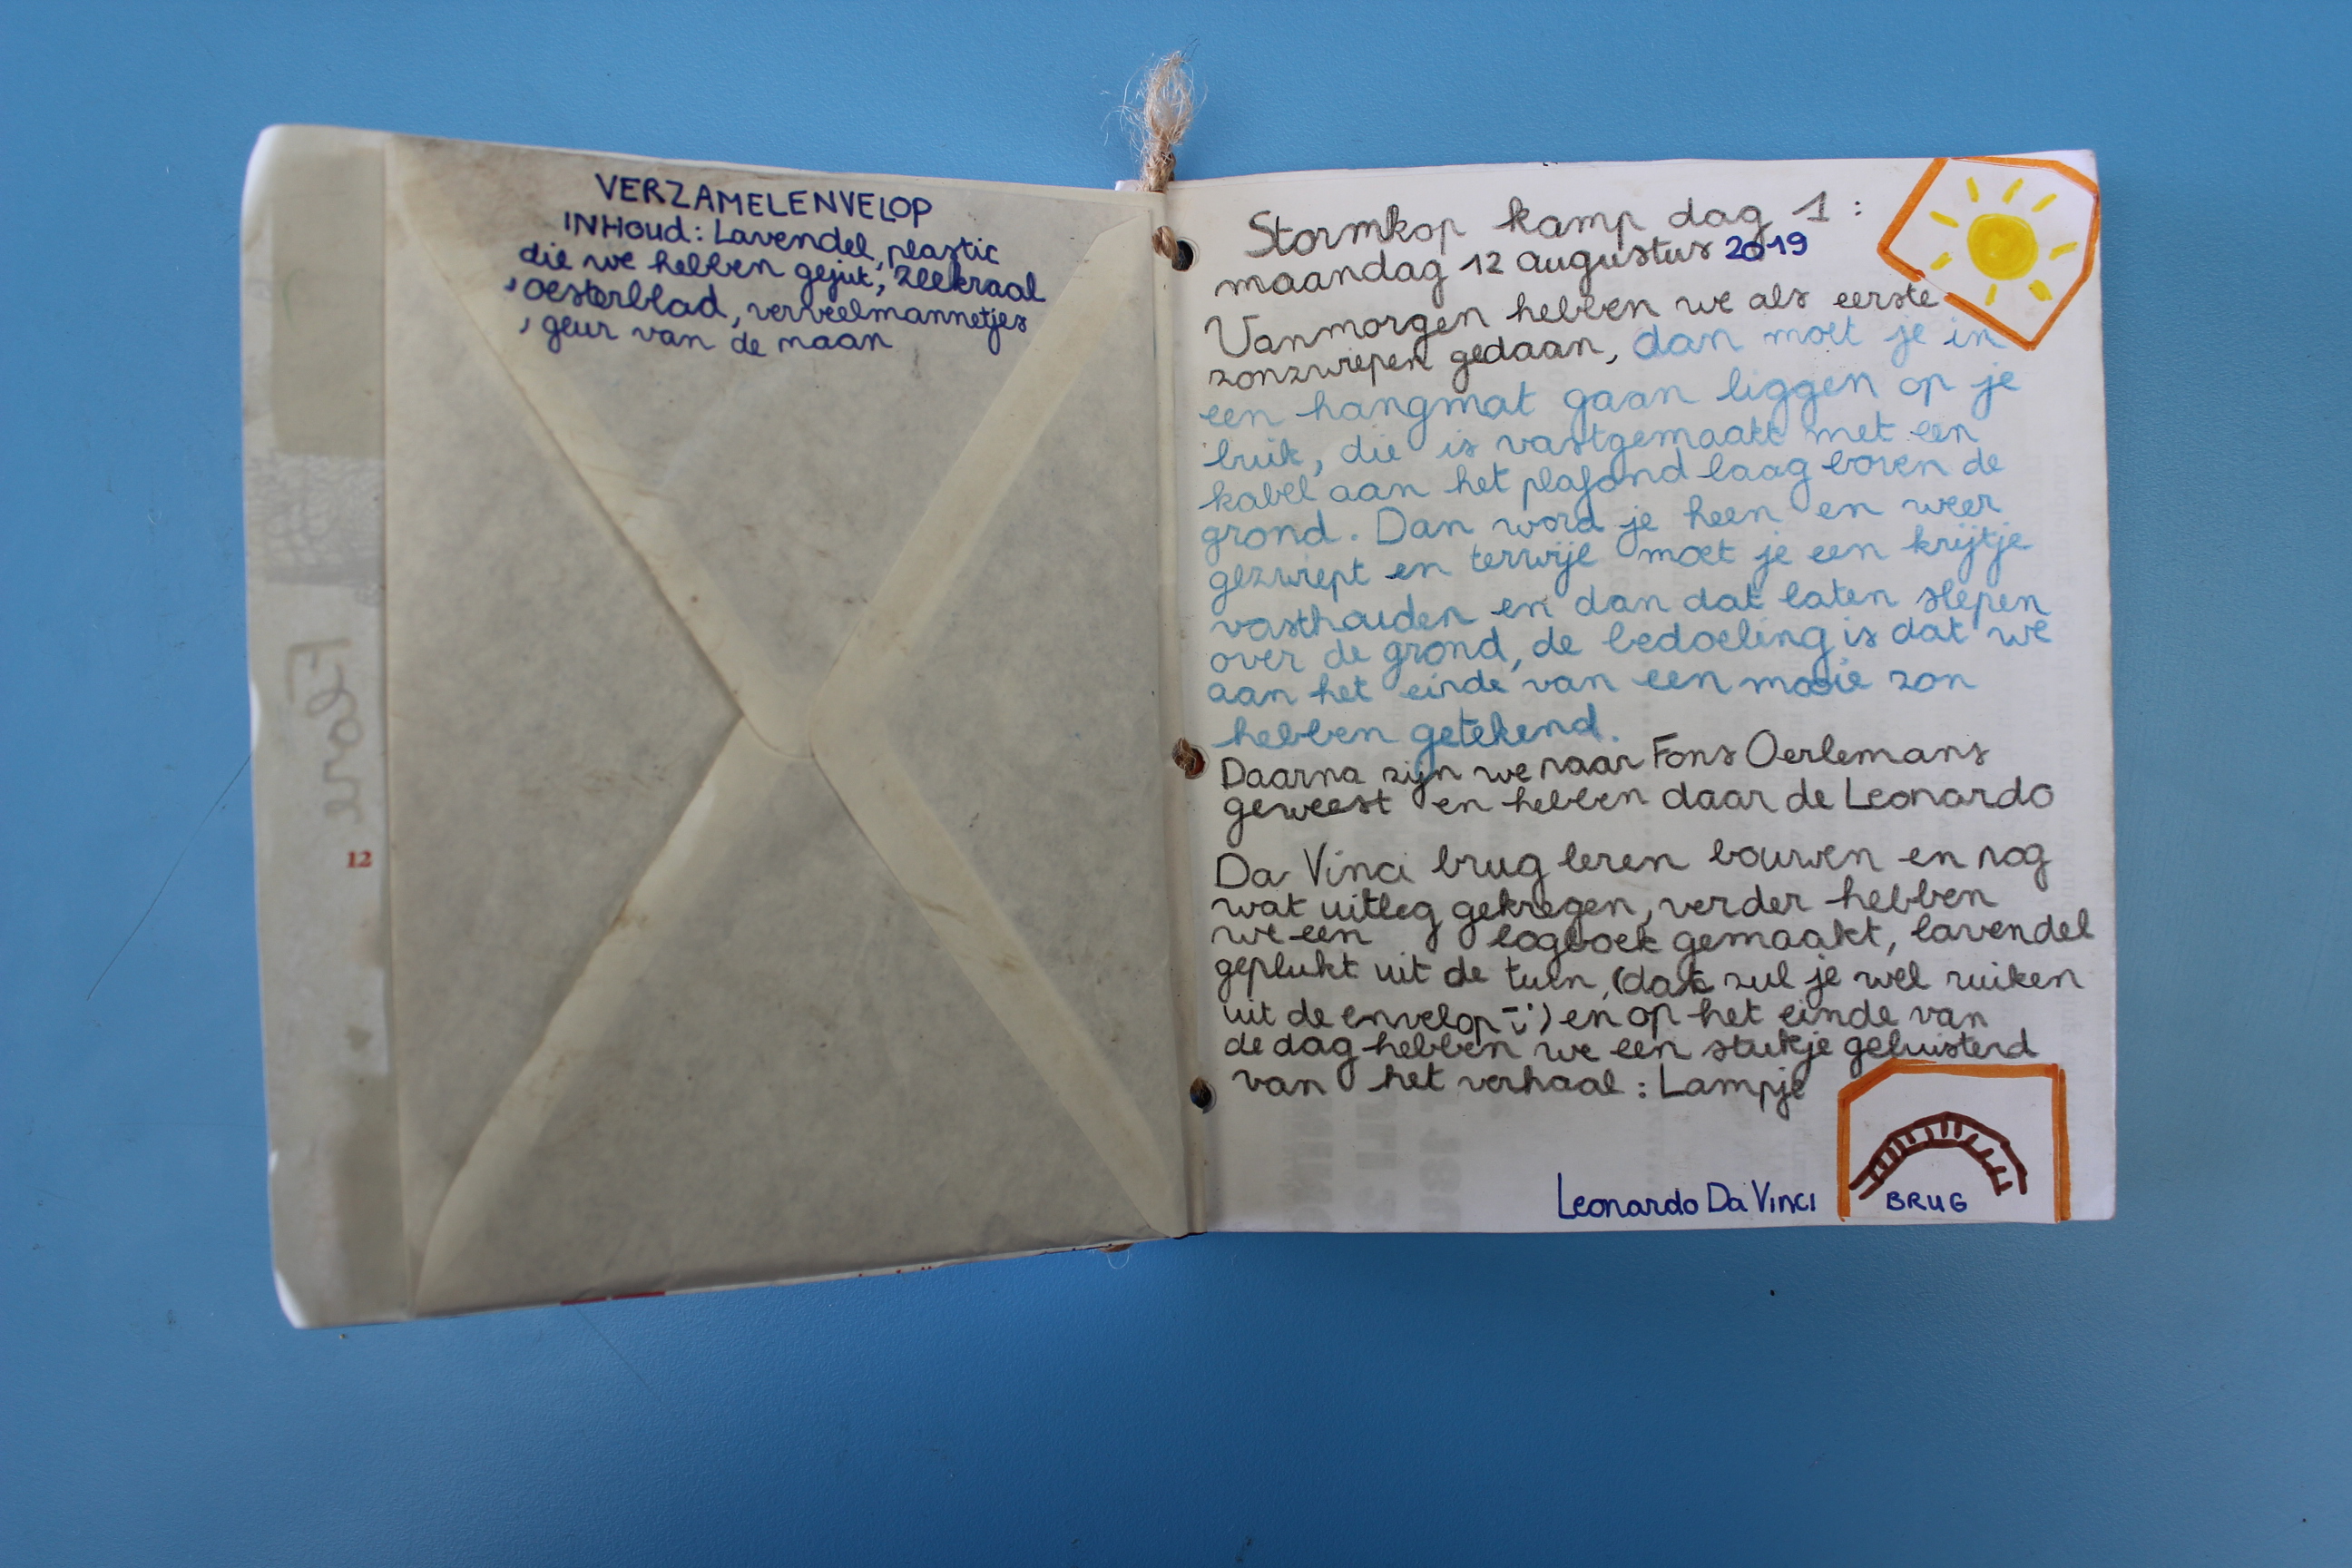 VERZAMELENVELOP
INHoud: Lavendel, plastic
die we hebben gejut, zeekraal
, oesterblad, verveelmannetjes
, geur van de maan
12
Stormkop kamp dag 1:
maandag 12 augustus 2019
Vanmorgen hebben we als eerste
zonzwiepen gedaan, dan moet je in
een hangmat gaan liggen op je
buik, die is vastgemaakt met een
kabel aan het plafond laag boven de
grond. Dan word je heen en weer
gezwiept en terwijl moet je een krijtje
vasthouden en dan dat laten slepen
over de grond, de bedoeling is dat we
aan het einde van een mooie zon
hebben getekend.
Daarna zijn we naar Fons Oerlemans
geweest en hebben daar de Leonardo
Da Vinci brug leren bouwen en nog
wat uitleg gekregen, verder hebben
we een logboek gemaakt, lavendel
geplukt uit de tuin, (dat zul je wel ruiken
uit de envelop -;') en op het einde van
de dag hebben we een stukje geluisterd
van het verhaal: Lampje
Leonardo Da Vinci BRUG